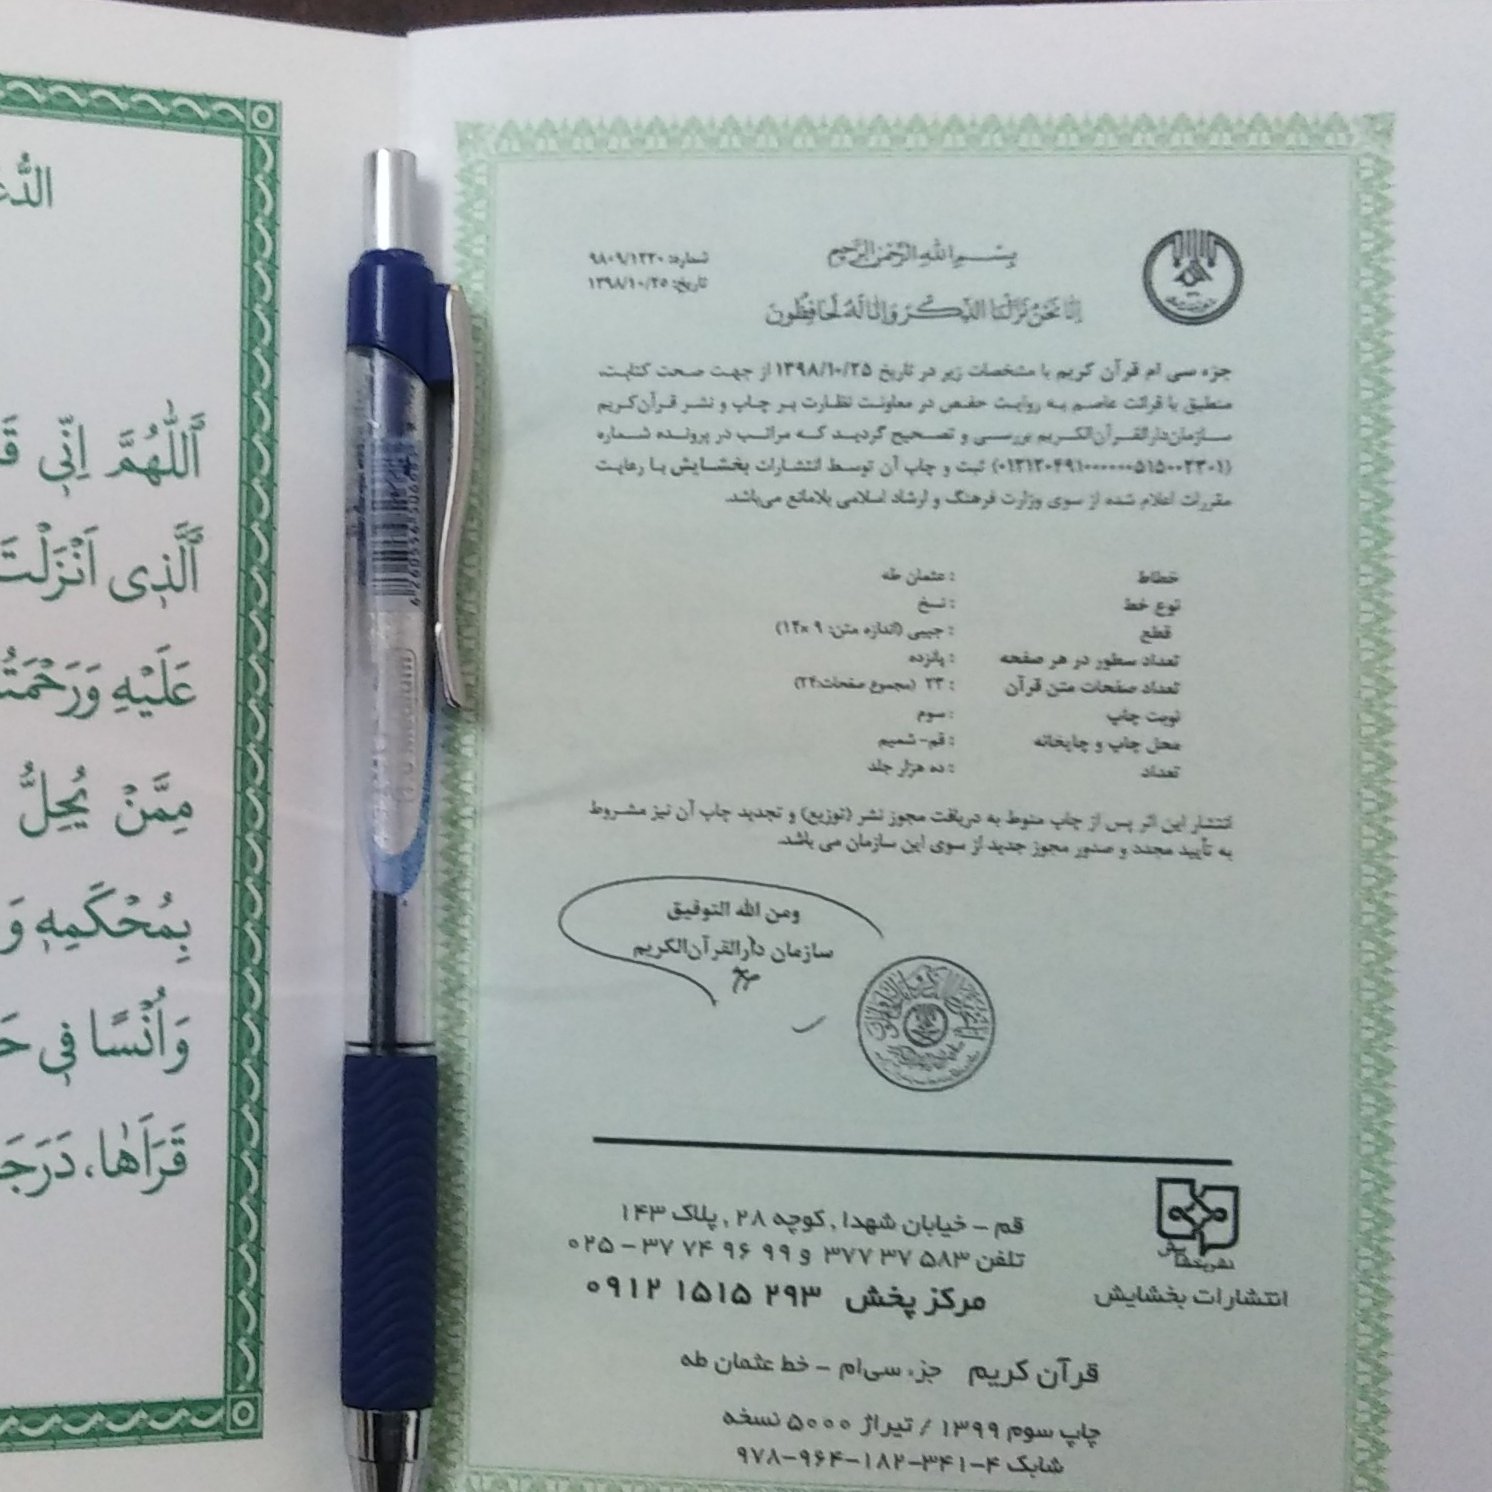 بسم الله الرحمن الرحیم
شماره: ۹۸۰۹/۱۳۳۰
تاریخ: ۱۳۹۸/۱۰/۲۵
اِنّا نَحنُ نَزَّلنَا الذِّکرَ وَاِنّا لَهُ لَحافِظُونَ
جزء سی ام قرآن کریم با مشخصات زیر در تاریخ ۱۳۹۸/۱۰/۲۵ از جهت صحت کتابت،
منطبق با قرائت عاصم به روایت حفص در معاونت نظارت بر چاپ و نشر قرآن‌کریم
سازمان‌دارالقرآن‌الکریم بررسی و تصحیح گردید که مراتب در پرونده شماره
ثبت و چاپ آن توسط انتشارات بخشایش با رعایت
مقررات اعلام شده از سوی وزارت فرهنگ و ارشاد اسلامی بلامانع می‌باشد.
خطاط : عثمان طه
نوع خط : نسخ
قطع : جیبی (اندازه متن: ۹ ×۱۴)
تعداد سطور در هر صفحه : پانزده
تعداد صفحات متن قرآن : ۲۳ (مجموع صفحات:۲۴)
نوبت چاپ : سوم
محل چاپ و چاپخانه : قم- شمیم
تعداد : ده هزار جلد
انتشار این اثر پس از چاپ منوط به دریافت مجوز نشر (توزیع) و تجدید چاپ آن نیز مشروط
به تأیید مجدد و صدور مجوز جدید از سوی این سازمان می باشد.
ومن الله التوفیق
سازمان دارالقرآن‌الکریم
نشر بخشایش
انتشارات بخشایش
قم – خیابان شهدا ، کوچه ۲۸ ، پلاک ۱۴۳
تلفن ۵۸۳ ۳۷ ۳۷۷ و ۹۹ ۹۶ ۷۴ ۳۷ – ۰۲۵
مرکز پخش ۲۹۳ ۱۵۱۵ ۰۹۱۲
قرآن کریم جزء سی‌ام – خط عثمان طه
چاپ سوم ۱۳۹۹ / تیراژ ۵۰۰۰ نسخه
شابک ۴-۳۴۱-۱۸۲-۹۶۴-۹۷۸
اَللّٰهُمَّ اِنّٖی
اَلَّذٖی اَنْزَلْتَ
عَلَیْهِ وَرَحْمَتُ
مِمَّنْ یُحِلُّ
بِمُحْکَمِهٖ وَ
وَاُنْسًا فٖی
قَرَاَهٰا، دَرَجَ